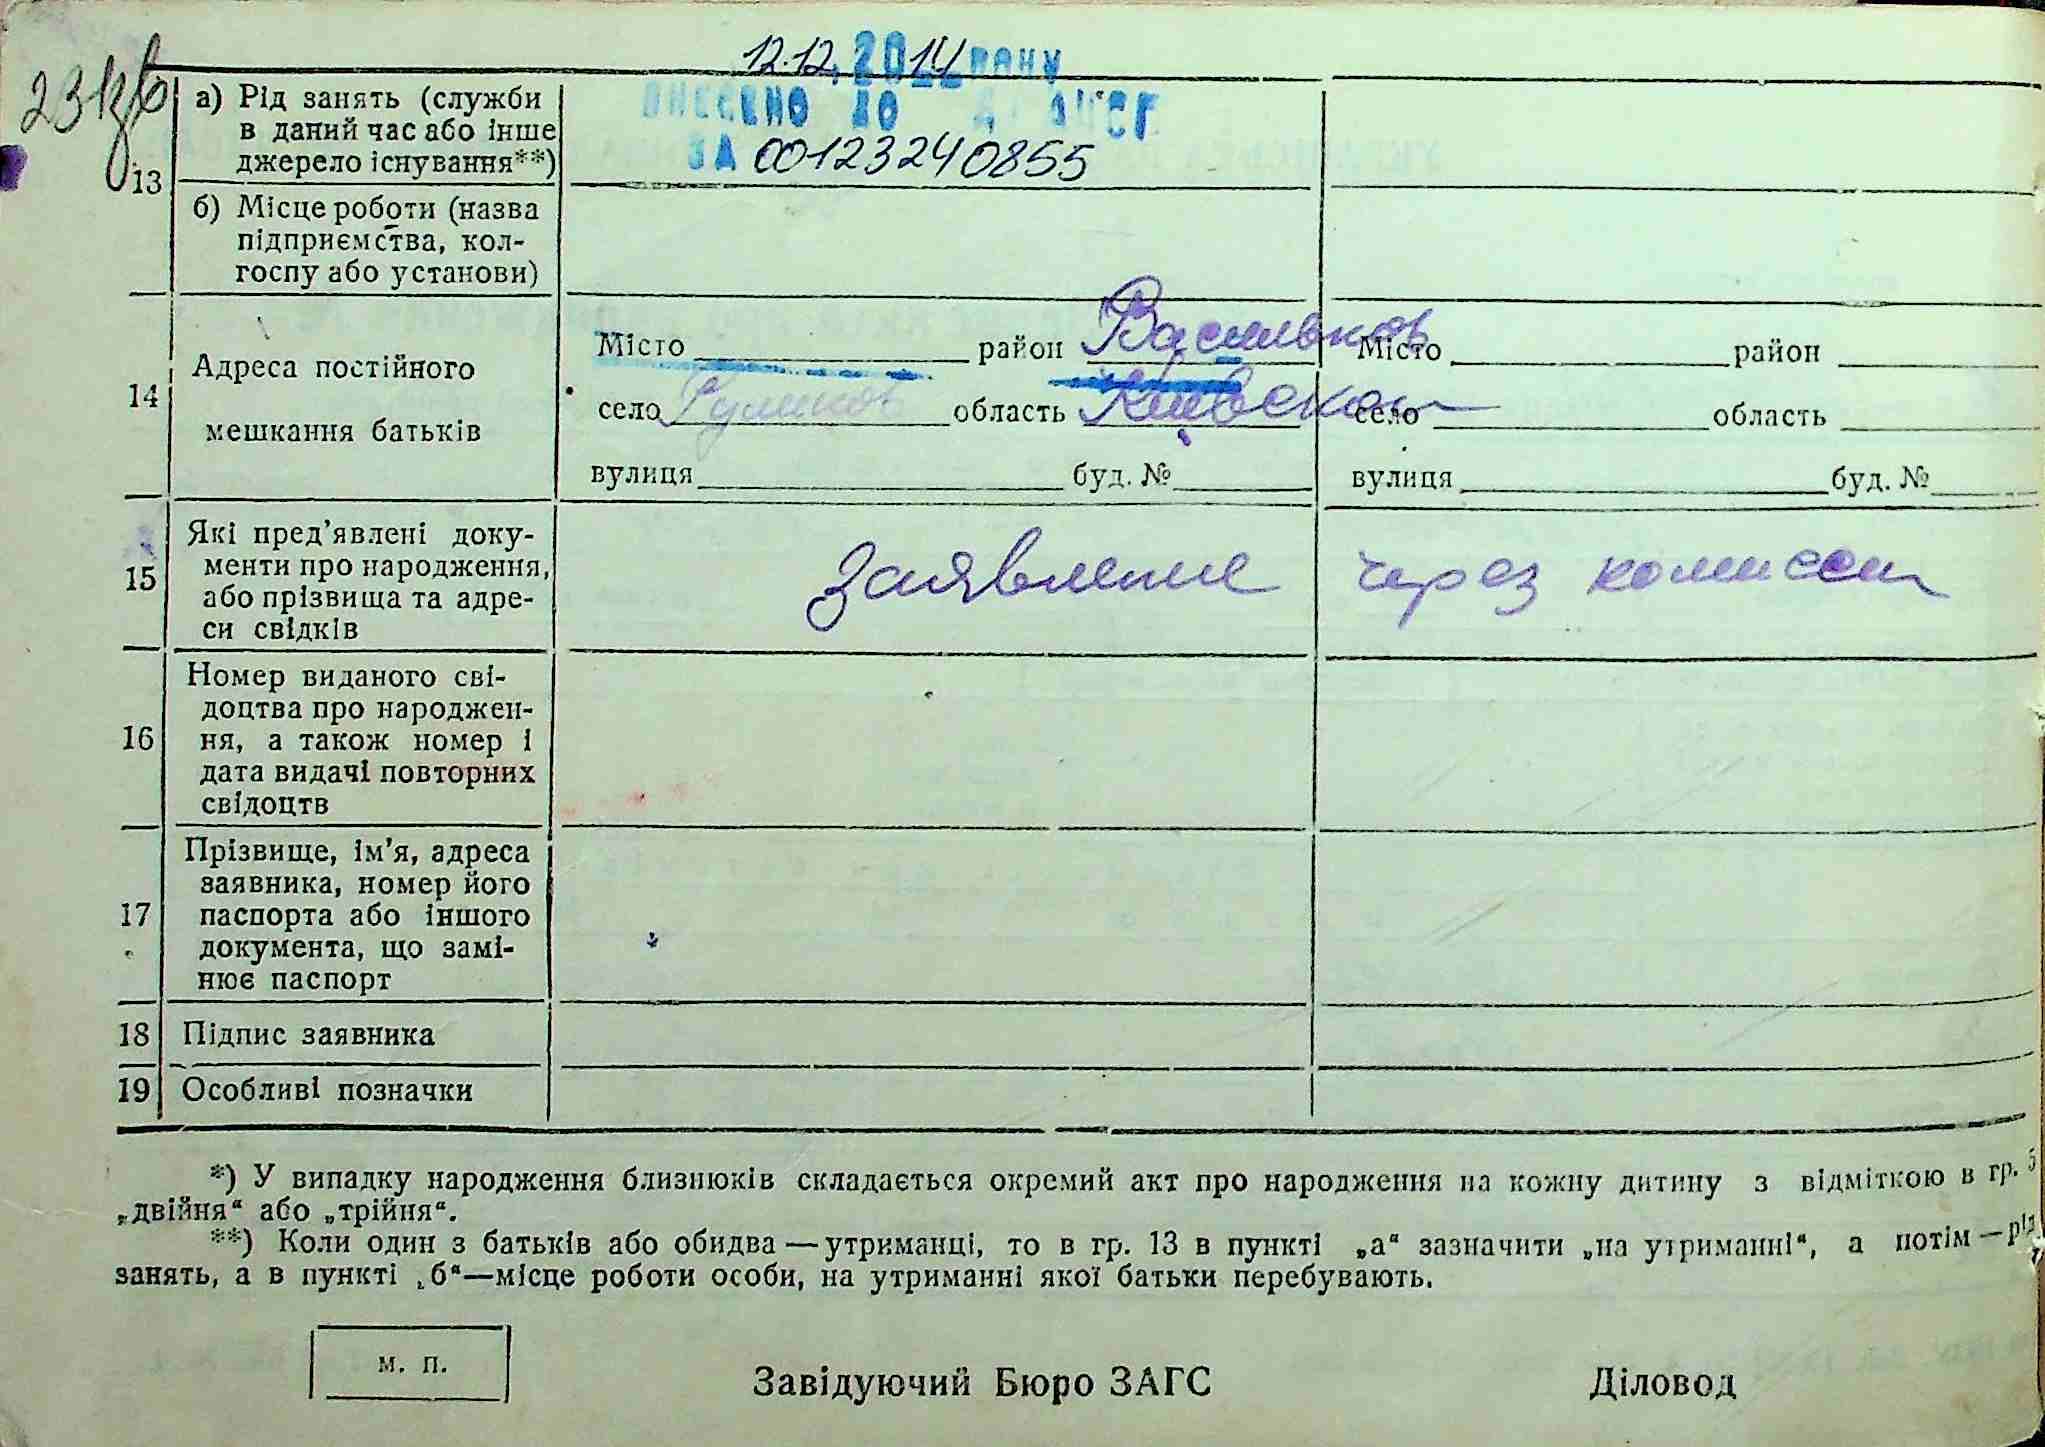 12.12.2014 року
внесено до ДРАЦСГ
за 00123240855
13 а) Рід занять (служби
в даний час або інше
джерело існування**)
б) Місце роботи (назва
підприємства, кол-
госпу або установи)
14 Адреса постійного
мешкання батьків
Місто район Васильков
село область Киевская
вулиця буд. №
Місто район
село область
вулиця буд. №
15 Які пред’явлені доку-
менти про народження,
або прізвища та адре-
си свідків
заявление через комисси
16 Номер виданого сві-
доцтва про народжен-
ня, а також номер і
дата видачі повторних
свідоцтв
17 Прізвище, ім’я, адреса
заявника, номер його
паспорта або іншого
документа, що замі-
нює паспорт
18 Підпис заявника
19 Особливі позначки
*) У випадку народження близнюків складається окремий акт про народження на кожну дитину з відміткою в гр. 5
„двійня“ або „трійня“.
**) Коли один з батьків або обидва — утриманці, то в гр. 13 в пункті „а“ зазначити „на утриманні“, а потім — рід
занять, а в пункті „б“—місце роботи особи, на утриманні якої батьки перебувають.
м. п.
Завідуючий Бюро ЗАГС Діловод